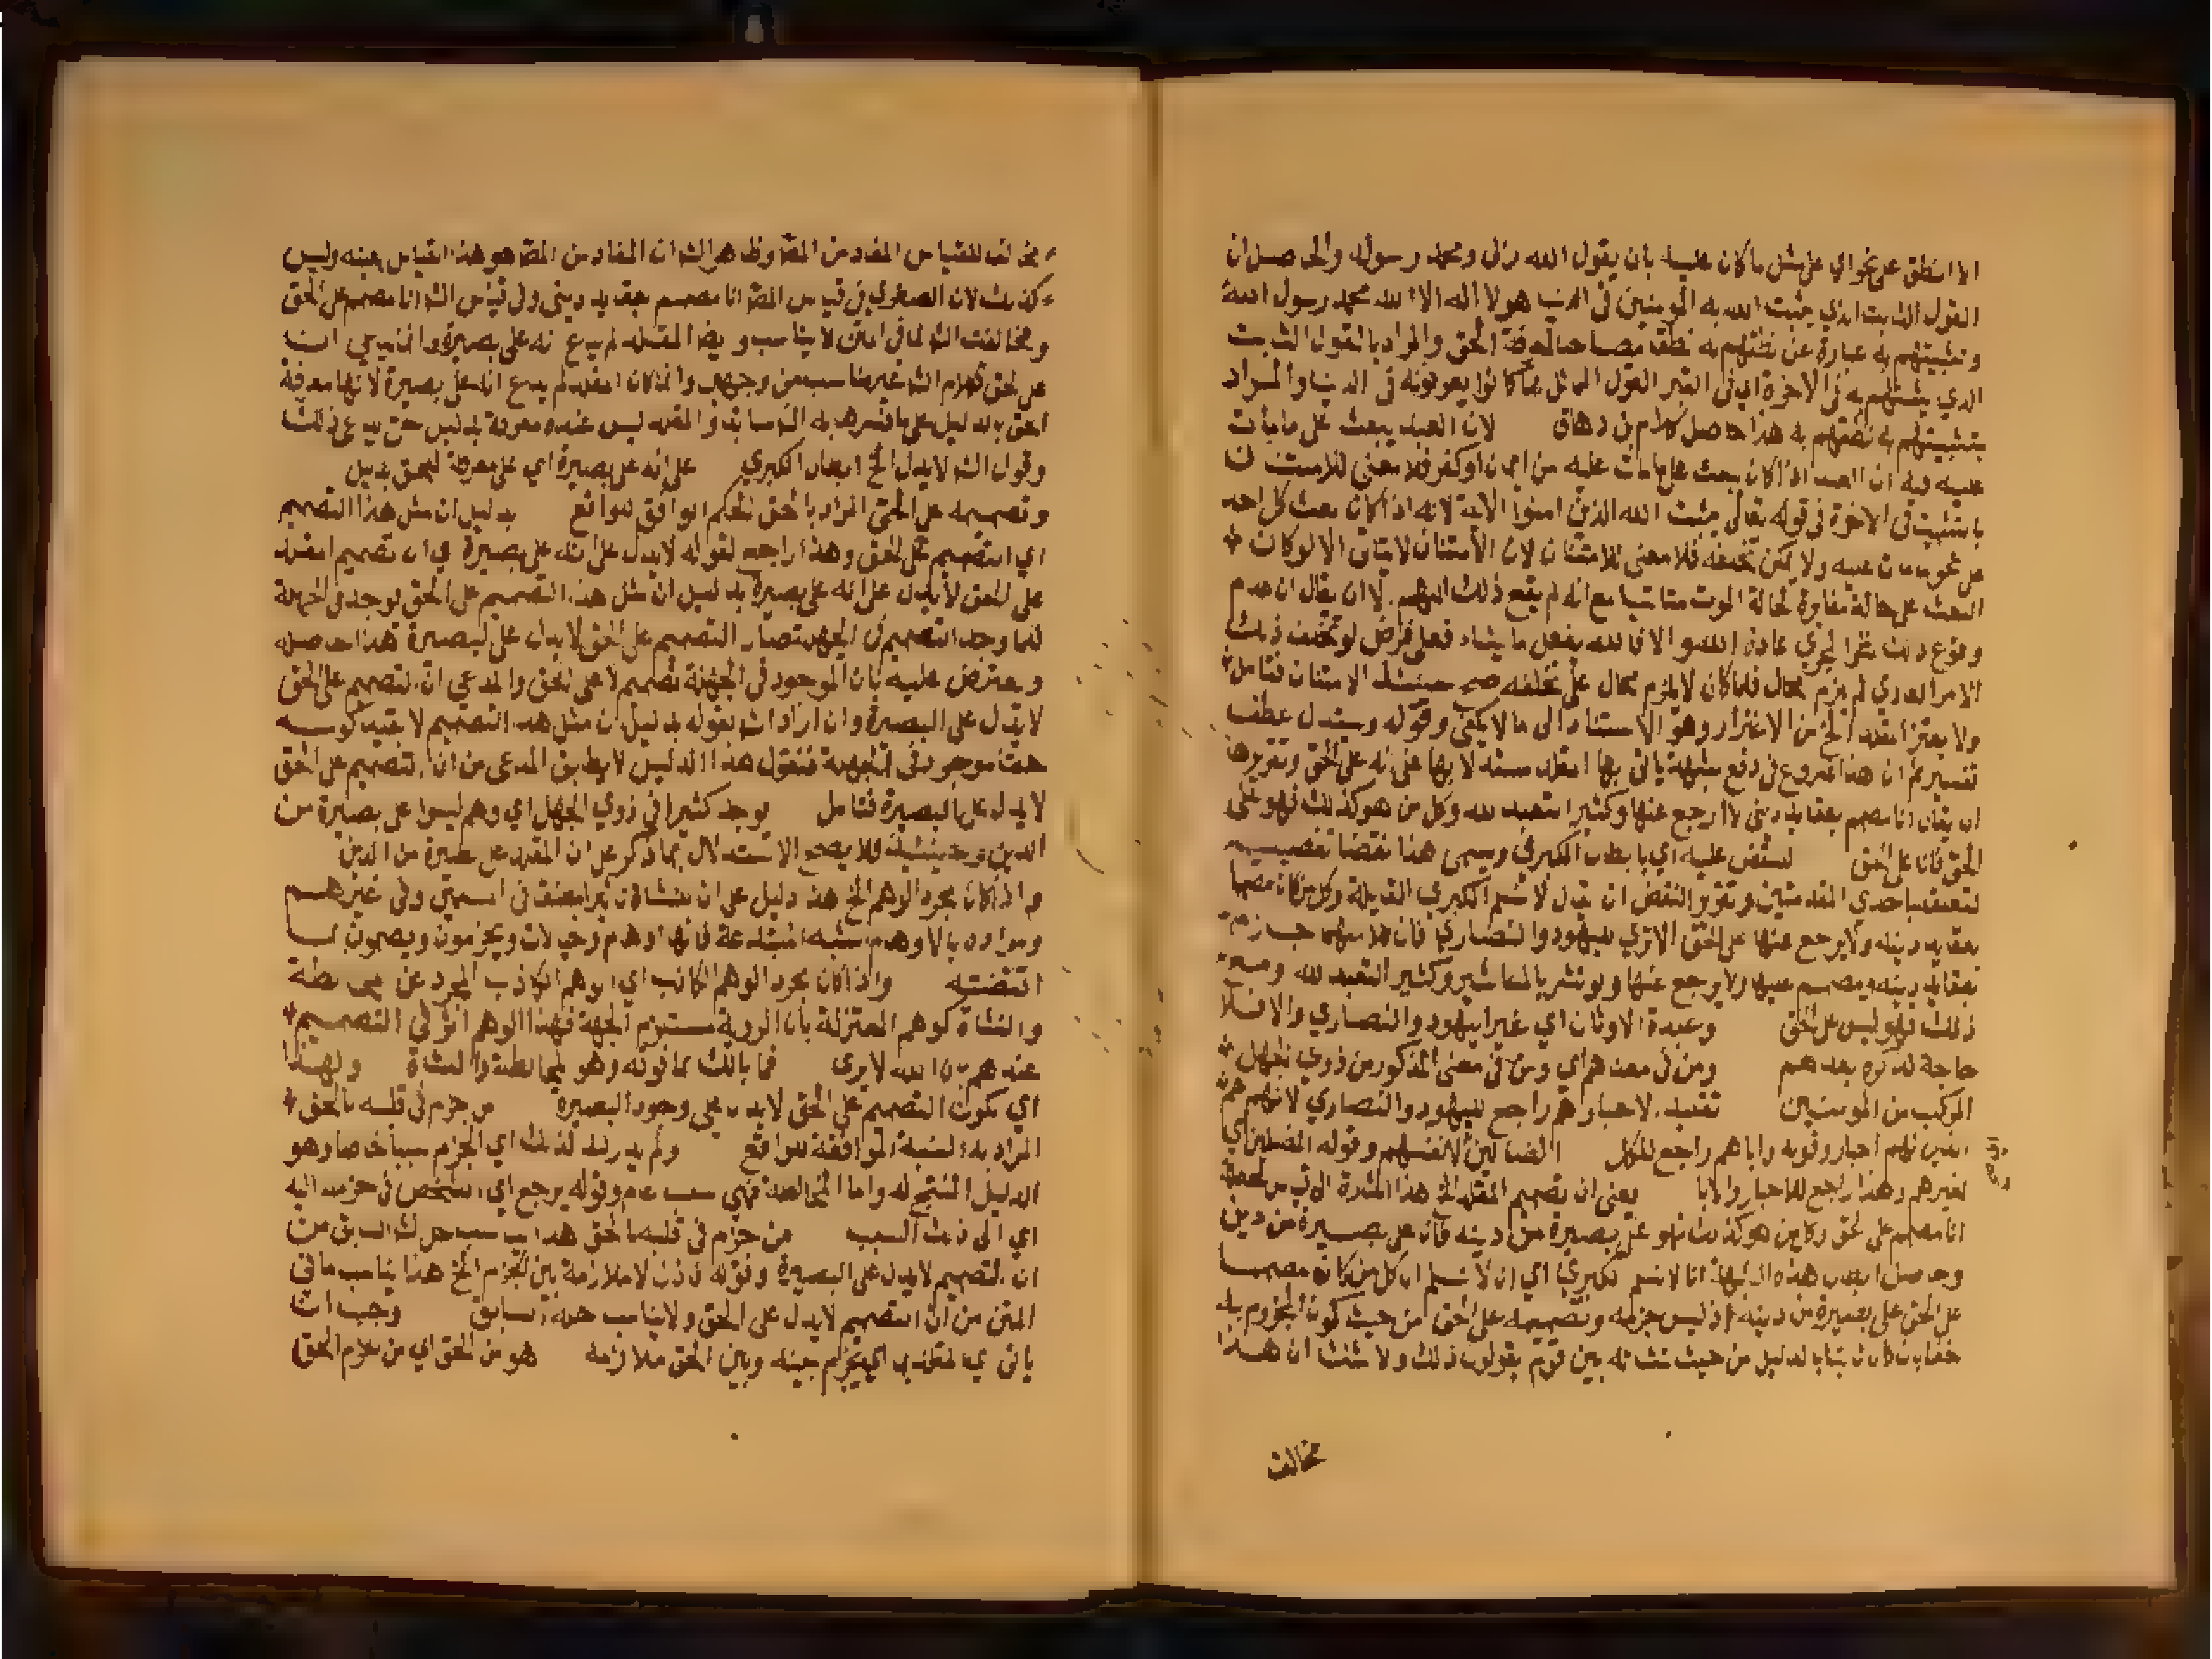 الا انطق على نحو اي على مثل ما كان عليه بان يقول الله ربي ومحمد رسوله والحاصل ان
القول الثابت الذي يثبت الله به المومنين في الدنيا هو لا اله الا الله محمد رسول الله
وتثبيتهم به عبارة عن نطقهم به نطقا مصاحبا لمعرفة الحق والمراد بالقول الثابت
الذي يثبتهم به في الاخرة اي في القبر القول المماثل لما كانوا يقولونه في الدنيا والمراد
بتثبيتهم به نطقهم به هذا حاصل كلام بن دهاق لان العبد يبعث على ما مات
عليه فيه ان العبد اذا كان يبعث على ما مات عليه من ايمان او كفر فلا معنى للامتنان
بالتثبيت في الاخرة في قوله تعالى يثبت الله الذين امنوا الاية لانه اذا كان يبعث كل احد
على نحو ما مات عليه ولا يمكن تخلفه فلا معنى للامتنان لان الامتنان لا يتاتى الا لو كان
البعث على حالة مغايرة لحالة الموت متاتيا مع انه لم يقع ذلك اليهم الا ان يقال ان عدم
وقوع ذلك نظرا لجري عادة الله والا فالله يفعل ما يشاء فعلى فرض لو تخلف ذلك
الامر العادي لم يلزم محال فلما كان لا يلزم محال على تخلفه صح حينئذ الامتنان فتامل
ولا يغتر المقلد الخ من الاغترار وهو الاستناد الى ما لا يكفي وقوله ويستدل عطف
تفسير ثم ان هذا شروع في دفع شبهة ياتي بها المقلد يستدل بها على انه على الحق وتقريرها
ان يقال انا مصمم بعقايد ديني لا ارجع عنها وكثير التعبد لله وكل من هو كذلك فهو على
الحق فانا على الحق لينتقض عليه اي بابطال الكبرى ويسمى هذا نقضا تفصيليا
لتعلقه باحدى المقدمتين وتقرير النقض ان يقال لا نسلم الكبرى القايلة وكل من كان مصمما
بعقايد دينه ولا يرجع عنها على الحق الا ترى لليهود والنصارى فان كلا منهما جازم
بعقايد دينه ومصمم عليها ولا يرجع عنها ولو نشر بالمناشير وكثير التعبد لله ومع
ذلك فهو ليس على الحق وعبدة الاوثان اي غير اليهود والنصارى والا فلا
حاجة لذكره بعدهم ومن في معناهم اي ومن في معنى المذكور من ذوي الجهل
المركب من المومنين تقليد الاحبارهم راجع لليهود والنصارى لانهم هم
الذين لهم احبار وقوله واباهم راجع للكل الضالين لانفسهم وقوله المضلين اي
لغيرهم وهذا راجع للاحبار والابا يعني ان تصميم المقلد الخ هذا اشارة الى قياس
انا مصمم على الحق وكل من هو كذلك فهو على بصيرة من دينه فانا على بصيرة من ديني
وحاصل ابطال هذه الشبهة انا لا نسلم الكبرى اي ان لا نسلم ان كل من كان مصمما
على الحق على بصيرة من دينه اذ ليس جزمه وتصميمه على الحق من حيث كون المجزوم به
حقا بل من حيث نشاته بين قوم يقولون ذلك ولا شك ان هذا
مخالف
مخالف للقياس المفاد من المصـ وظاهر الشـ ان المفاد من المصـ هو هذا القياس بعينه وليس
كذلك لان الصغرى في قياس المصـ انا مصمم بعقايد ديني وفي قياس الشـ انا مصمم على الحق
ومخالفة الشـ لما في المتن لا يناسب وايضا المقلد لم يدع انه على بصيرة وانما يدعي انه
على الحق فكلام الشـ غير مناسب من وجهين وانما كان المقلد لم يدع انه على بصيرة لانها معرفة
الحق بالدليل على ما فسرها به الشـ سابقا والمقلد ليس عنده معرفة بدليل حتى يدعي ذلك
وقول الشـ لا يدل الخ ابطال الكبرى على انه على بصيرة اي على معرفة الحق بدليل
وتصميمه على الحق المراد بالحق الحكم الموافق للواقع بدليل ان مثل هذا التصميم
اي التصميم على الحق وهذا راجع لقوله لا يدل على انه على بصيرة اي ان تصميم المقلد
على الحق لا يدل على انه على بصيرة بدليل ان مثل هذا التصميم على الحق يوجد في الجهلة
فلما وجد التصميم في الجهلة صار التصميم على الحق لا يدل على البصيرة هذا حاصله
ويعترض عليه بان الموجود في الجهلة تصميم لا على الحق والمدعى ان التصميم على الحق
لا يدل على البصيرة وان اراد الشـ بقوله بدليل ان مثل هذا التصميم لا بقيد كونه
حقا موجود في الجهلة فنقول هذا الدليل لا يطابق المدعى من ان التصميم على الحق
لا يدل على البصيرة فتامل يوجد كثيرا في ذوي الجهل اي وهم ليسوا على بصيرة من
الدين وحينئذ فلا يصح الاستدلال بما ذكر على ان المقلد على بصيرة من الدين
واذا كان مجرد الوهم الخ هذا دليل على ان
ومراده بالاوهام شبه المبتدعة فانها اوهام وخيالات ويجزمون ويصممون بما
اقتضته واذا كان مجرد الوهم الكاذب اي الوهم الكاذب المجرد عن مخالطة
والنشاة كوهم المعتزلة بان الروية تستلزم الجهة فهذا الوهم اثر في التصميم
عندهم بان الله لا يرى فما بالك بما فوقه وهو المخالطة والنشاة ولهذا
اي لكون التصميم على الحق لا يدل على وجود البصيرة من جزم في قلبه بالحق
المراد به النسبة الموافقة للواقع ولم يدر له لذلك اي الجزم سببا خاصا وهو
الدليل المنتج له واما المخالطة فهي سبب عام وقوله يرجع اي الشخص في جزمه اليه
اي الى ذلك السبب من جزم في قلبه بالحق هذا يناسب حل الشـ السابق من
ان التصميم لا يدل على البصيرة وقوله اذ لا ملازمة بين الجزم الخ هذا يناسب ما في
المتن من ان التصميم لا يدل على الحق ولا يناسب حله السابق وجب ان
ياتي وبين الحق ملازمة هو من الحق اي من علام الحق